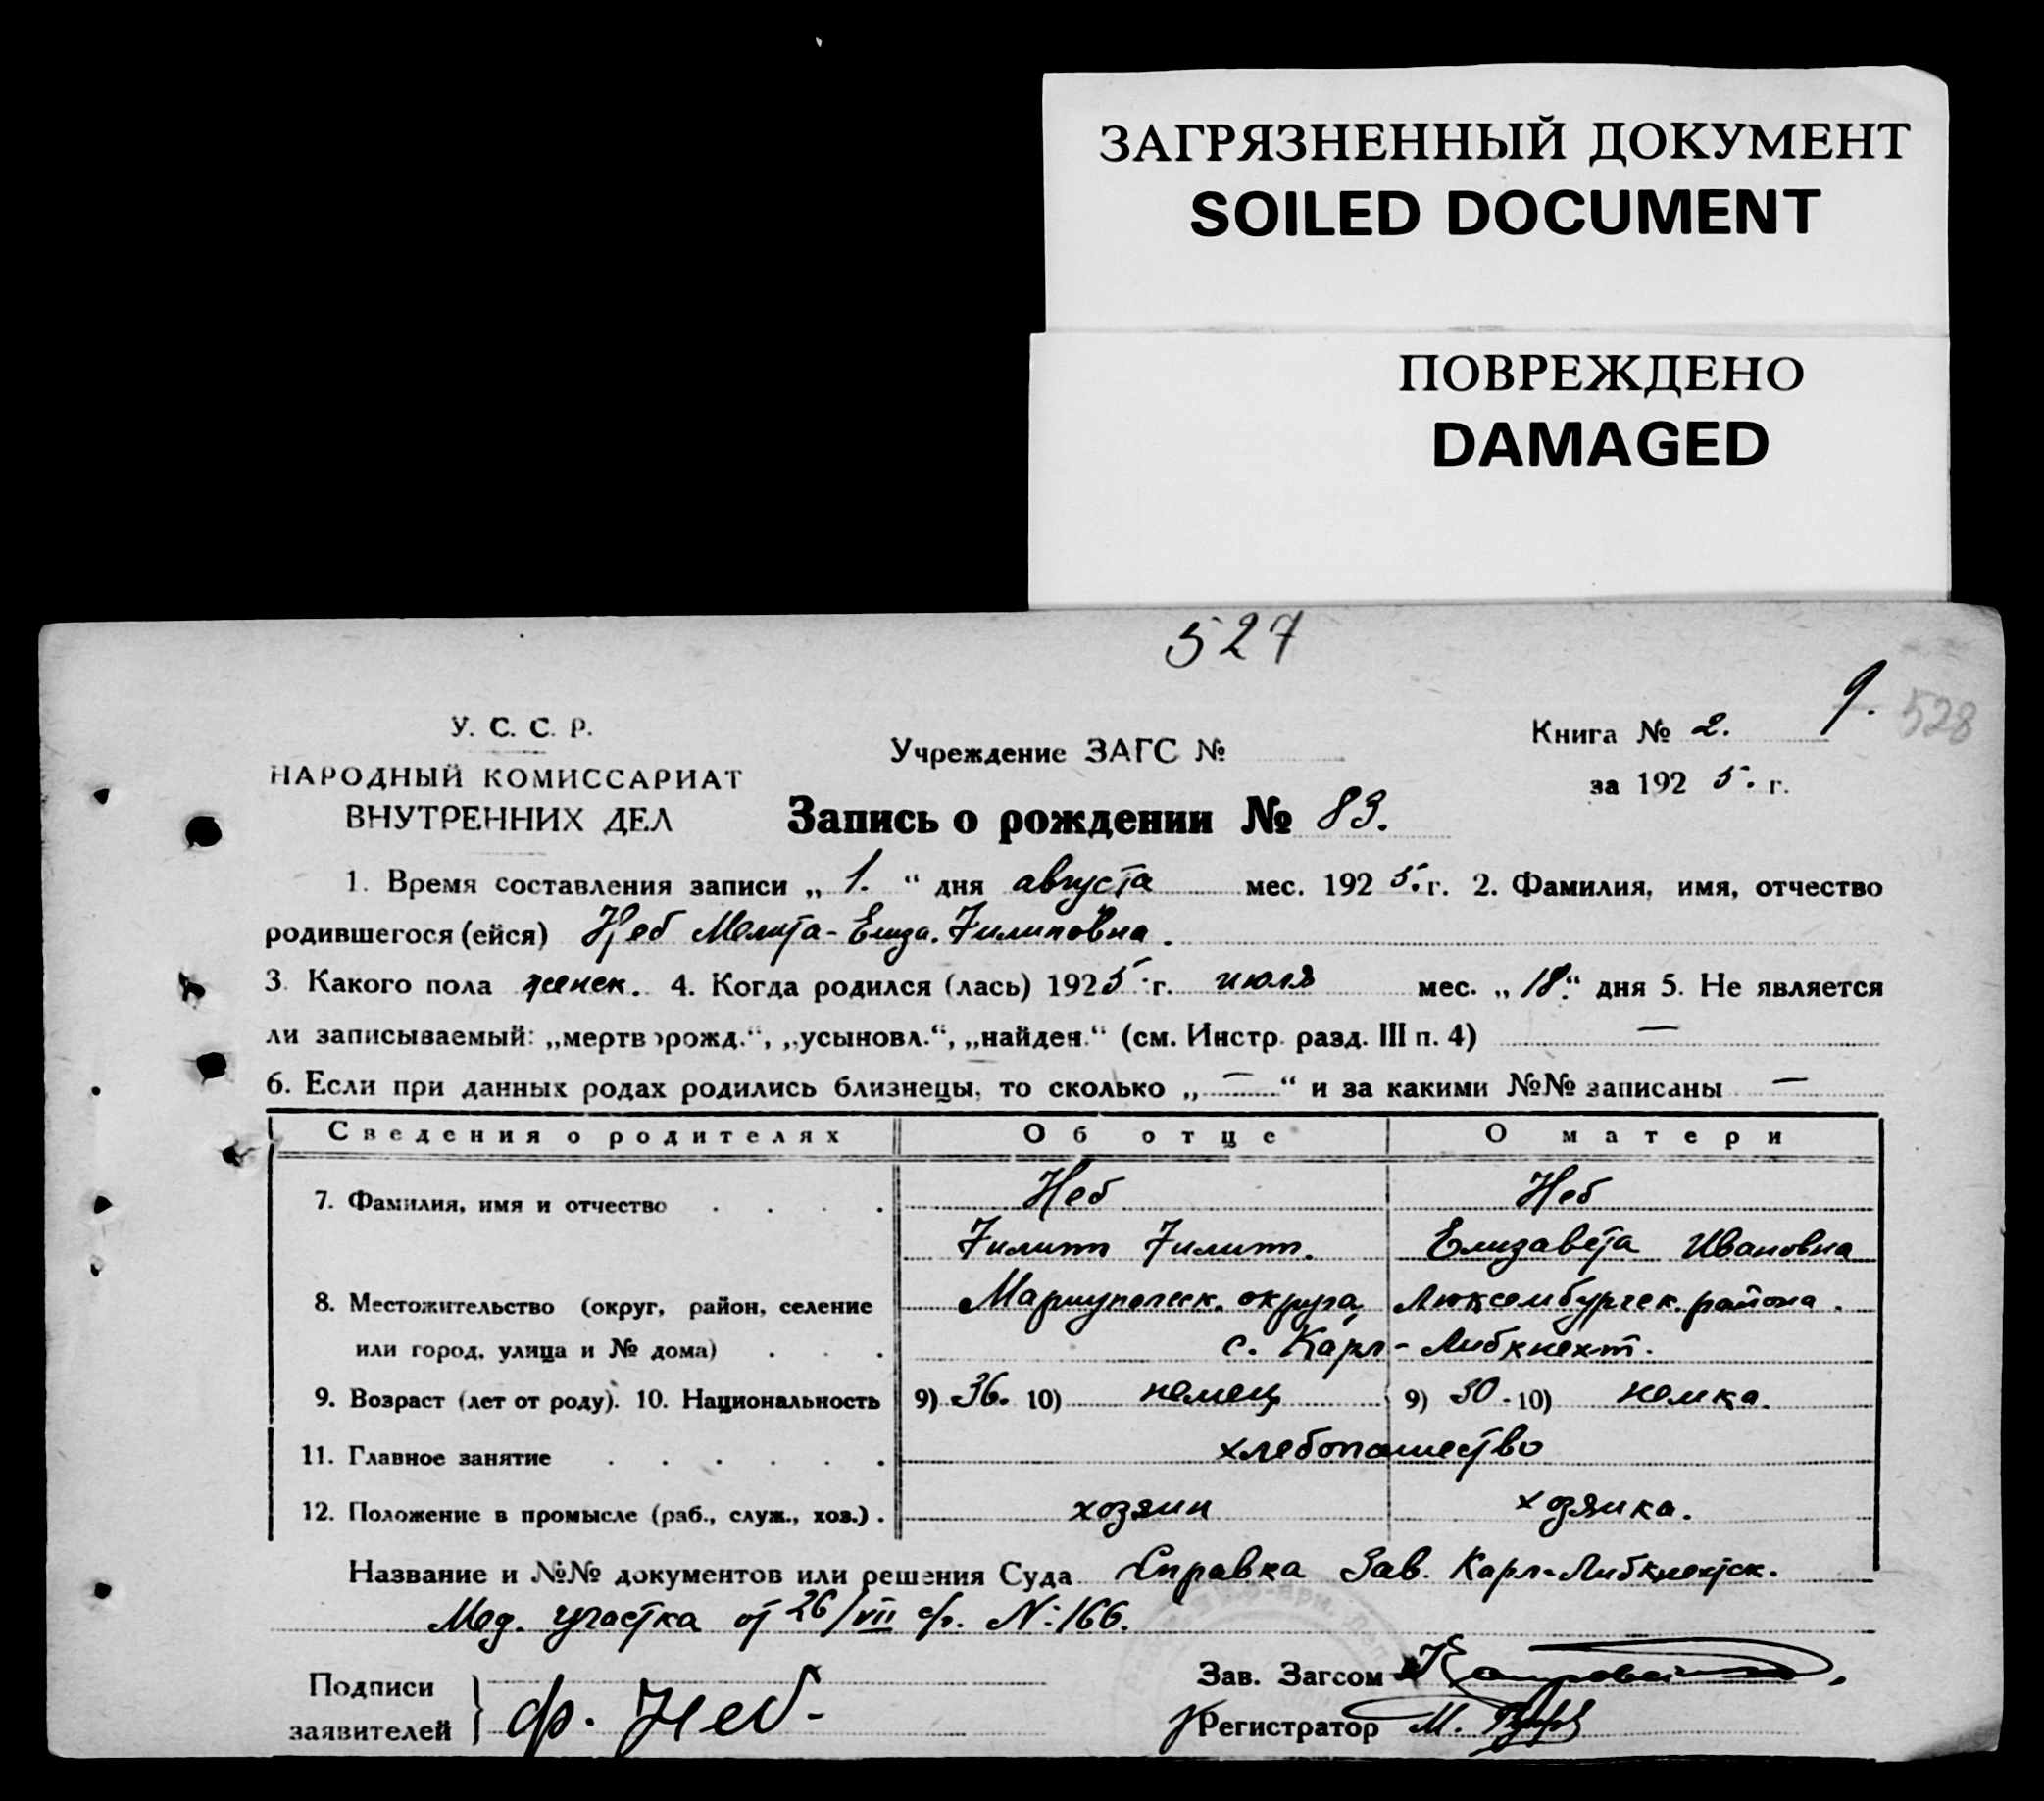 ЗАГРЯЗНЕННЫЙ ДОКУМЕНТ
SOILED DOCUMENT
ПОВРЕЖДЕНО
DAMAGED
527
9. 528
У. С. С. Р.
НАРОДНЫЙ КОМИССАРИАТ
ВНУТРЕННИХ ДЕЛ
Учреждение ЗАГС №
Книга № 2.
за 1925. г.
Запись о рождении № 83.
1. Время составления записи „ 1. “ дня августа мес. 1925. г. 2. Фамилия, имя, отчество
родившегося (ейся) Неб Мелита-Елиза. Филиповна.
3. Какого пола женск. 4. Когда родился (лась) 1925 г. июля мес. „18.“ дня 5. Не является
ли записываемый: „мертворожд.“, „усыновл.“, „найден.“ (см. Инстр. разд. III п. 4) —
6. Если при данных родах родились близнецы, то сколько „—“ и за какими №№ записаны —
Сведения о родителях Об отце О матери
7. Фамилия, имя и отчество Неб Неб
Филипп Филипп. Елизавета Ивановна
8. Местожительство (округ, район, селение Мариупольск. округа, Люксембургск. района.
или город, улица и № дома) с. Карл-Либкнехт.
9. Возраст (лет от роду). 10. Национальность 9) 36. 10) немец 9) 30. 10) немка.
11. Главное занятие хлебопашество
12. Положение в промысле (раб., служ., хоз.) хозяин хозяйка.
Название и №№ документов или решения Суда Справка Зав. Карл-Либкнехтск.
Мед. участка от 26/VII с/г. №166.
Подписи
заявителей
ф. Неб
Зав. Загсом
Регистратор М.